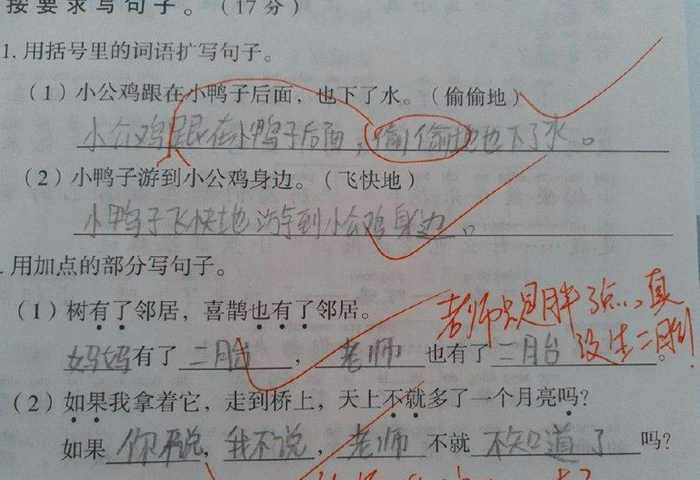 按要求写句子。(17分)
1. 用括号里的词语扩写句子。
(1)小公鸡跟在小鸭子后面,也下了水。(偷偷地)
小公鸡跟在小鸭子后面,偷偷地也下了水。
(2)小鸭子游到小公鸡身边。(飞快地)
小鸭子飞快地游到小公鸡身边。
. 用加点的部分写句子。
(1)树有了邻居,喜鹊也有了邻居。
老师只是胖了点,真
没生二胎!
妈妈有了二月台,老师也有了二月台。
(2)如果我拿着它,走到桥上,天上不就多了一个月亮吗?
如果你不说,我不说,老师不就不知道了吗?